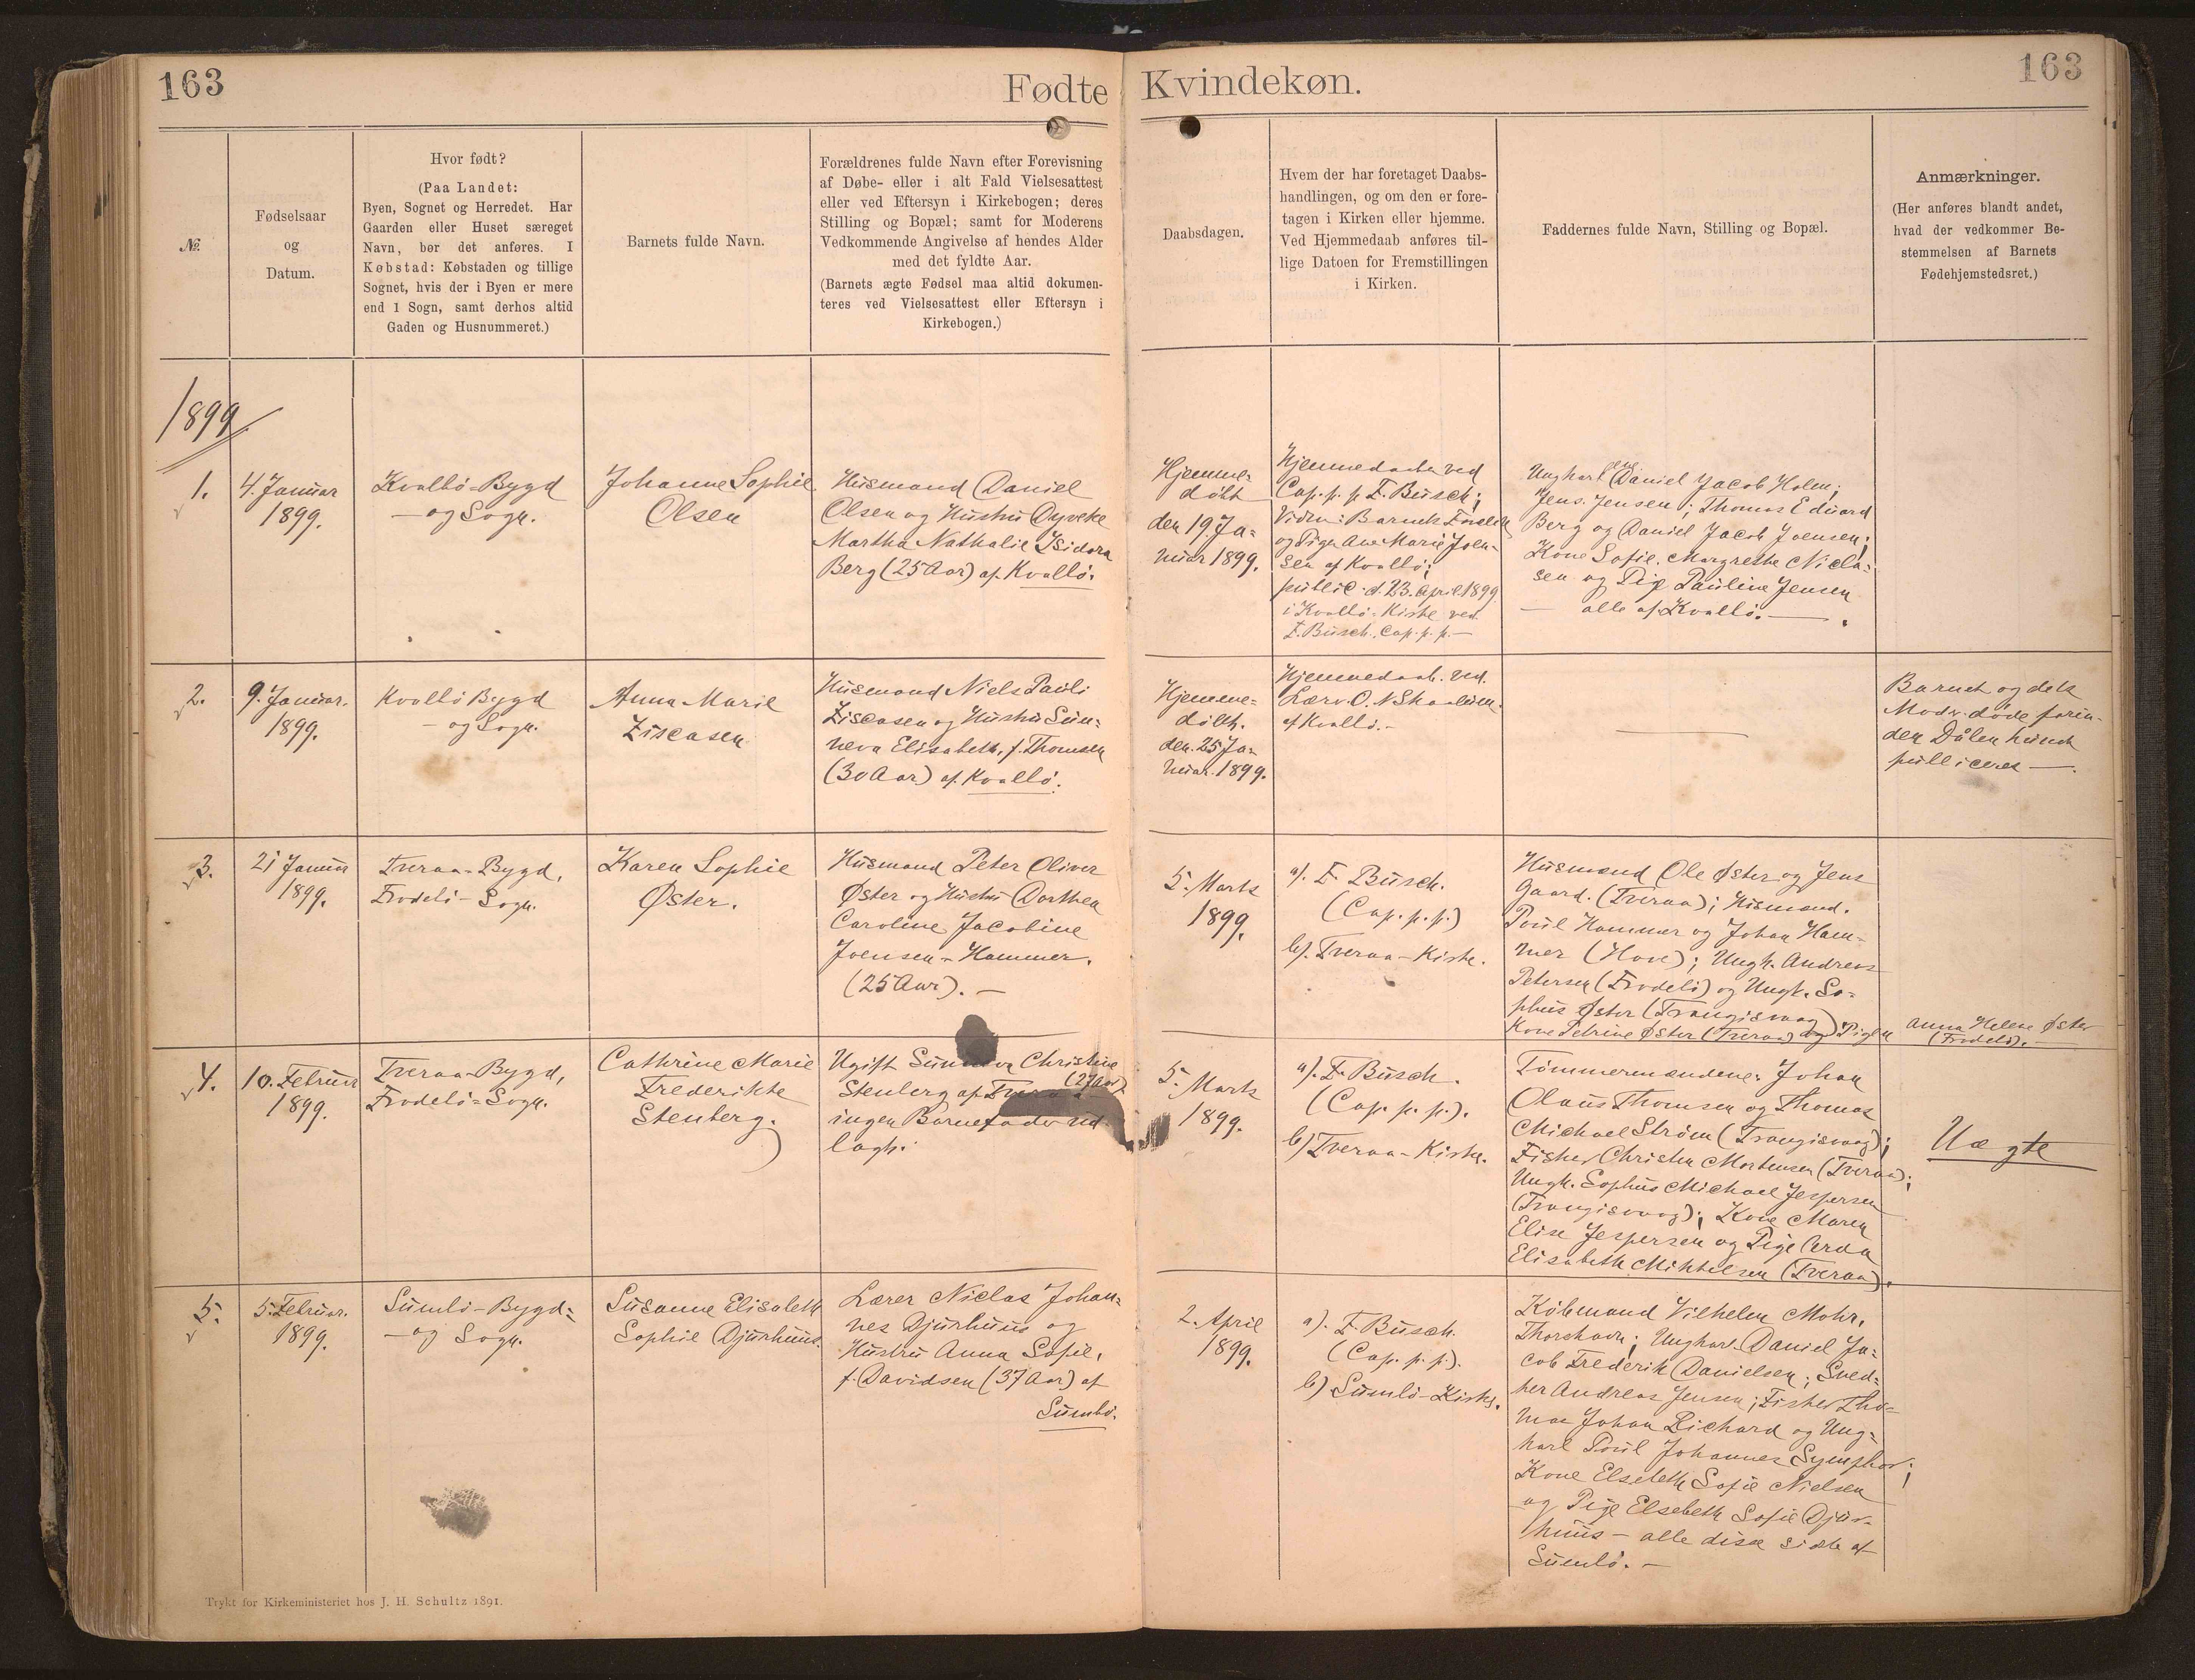 163
Fødte
Kvindekøn.
163
№
Fødselsaar
og
Datum.
Hvor født?
(Paa Landet:
Byen, Sognet og Herredet. Har
Gaarden eller Huset særeget
Navn, bør det anføres. I
Købstad: Købstaden og tillige
Sognet, hvis der i Byen er mere
end 1 Sogn, samt derhos altid
Gaden og Husnummeret.)
Barnets fulde Navn.
Forældrenes fulde Navn efter Forevisning
af Døbe- eller i alt Fald Vielsesattest
eller ved Eftersyn i Kirkebogen; deres
Stilling og Bopæl; samt for Moderens
Vedkommende Angivelse af hendes Alder
med det fyldte Aar.
(Barnets ægte Fødsel maa altid dokumen-
teres ved Vielsesattest eller Eftersyn i
Kirkebogen.)
Daabsdagen.
Hvem der har foretaget Daabs-
handlingen, og om den er fore-
tagen i Kirken eller hjemme.
Ved Hjemmedaab anføres til-
lige Datoen for Fremstillingen
i Kirken.
Faddernes fulde Navn, Stilling og Bopæl.
Anmærkninger.
(Her anføres blandt andet,
hvad der vedkommer Be-
stemmelsen af Barnets
Fødehjemstedsret.)
1899
1.
4. Januar
1899.
Kvalbø-Bygd
- og Sogn.
Johanne Sophie
Olsen
Husmand Daniel
Olsen og Hustru Dyveke
Martha Nathalie Isidora
Berg (25 Aar) af Kvalbø.
Hjemme-
døbt
den 19. Ja-
nuar 1899.
Hjemmedaab ved
Cap. p. p. F. Busch;
Vidn: Barnets Foreldre
og Pigen Ane Marie Joen-
sen af Kvalbø;
public. d. 23. April 1899
i Kvalbø-Kirke ved
F. Busch. Cap. p. p. —
Ungkarlene Daniel Jacob Holm;
Jens Jensen; Thomas Eduard
Berg og Daniel Jacob Joensen;
Kone Sofie Margrethe Nicla-
sen og Pige Pauline Jensen
— alle af Kvalbø. —
2.
9. Januar.
1899.
Kvalbø Bygd
- og Sogn.
Anna Marie
Ziscasen
Husmand Niels Pauli
Ziscasen og Hustru Sun-
neva Elisabeth, f. Thomsen
(30 Aar) af Kvalbø.
Hjemme-
døbt.
den 25 Ja-
nuar. 1899.
Hjemmedaab ved
Lærer O. N
af Kvalbø. -
Barnet og dets
Moder døde forin-
den Daaben kunde
publiceres —.
3.
21 Januar
1899.
Tveraa-Bygd,
Frodebø-Sogn.
Karen Sophie
Øster.
Husmand Peter Oliver
Øster og Hustru Dorthea
Caroline Jacobine
Joensen - Hammer.
(25 Aar). —
5. Marts
1899.
a). F. Busch.
(Cap. p. p.)
b). Tveraa-Kirke.
Husmænd Ole Øster og Jens
Gaard. (Tveraa); Husmænd.
Poul Hammer og Johan Ham-
mer (Hove); Ungk. Andreas
Petersen (Frodebø) og Ungk. So-
phus Øster (Trangisvaag)
Kone Petrine Øster (Tveraa) og Pigen
Anna Helene Øster
(Frodebø). —
4.
10. Februar
1899.
Tveraa-Bygd,
Frodebø-Sogn.
Cathrine Marie
Frederikke
Stenberg.
Ugift Sunneva Christine
(27 Aar)
Stenberg af Tveraa
ingen Barnefader ud-
lagt.
5. Marts
1899.
a). F. Busch.
(Cap. p. p.).
b) Tveraa-Kirke.
Tømmermændene Johan
Olaus Thomsen og Thomas
Michael Strøm (Trangisvaag);
Fisker Christen Mortensen (Tveraa);
Ungk. Sophus Michael Jespersen
(Trangisvaag); Kone Maren
Elise Jespersen og Pige
Elisabeth Mikkelsen (Tveraa).
Uægte
5.
5. Februar.
1899.
Sumbø-Bygd-
- og Sogn.
Susanne Elisabeth
Sophie Djurhuus.
Lærer Niclas Johan-
nes Djurhuus og
Hustru Anna Sofie,
f. Davidsen (37 Aar) af
Sumbø.
2. April
1899.
a). F. Busch.
(Cap. p. p.).
b) Sumbø-Kirke.
Købmand Vilhelm Mohr,
Thorshavn; Ungkarl Daniel Ja-
cob Frederik Danielsen; Sned-
ker Andreas Jensen; Fisker Tho-
mas Johan Richard og Ung-
karl Poul Johannes Symphor;
Kone Elsebeth Sofie Nielsen
og Pige Elsebeth Sofie Djur-
huus — alle disse sidste af
Sumbø. —
Trykt for Kirkeministeriet hos J. H. Schultz 1891.